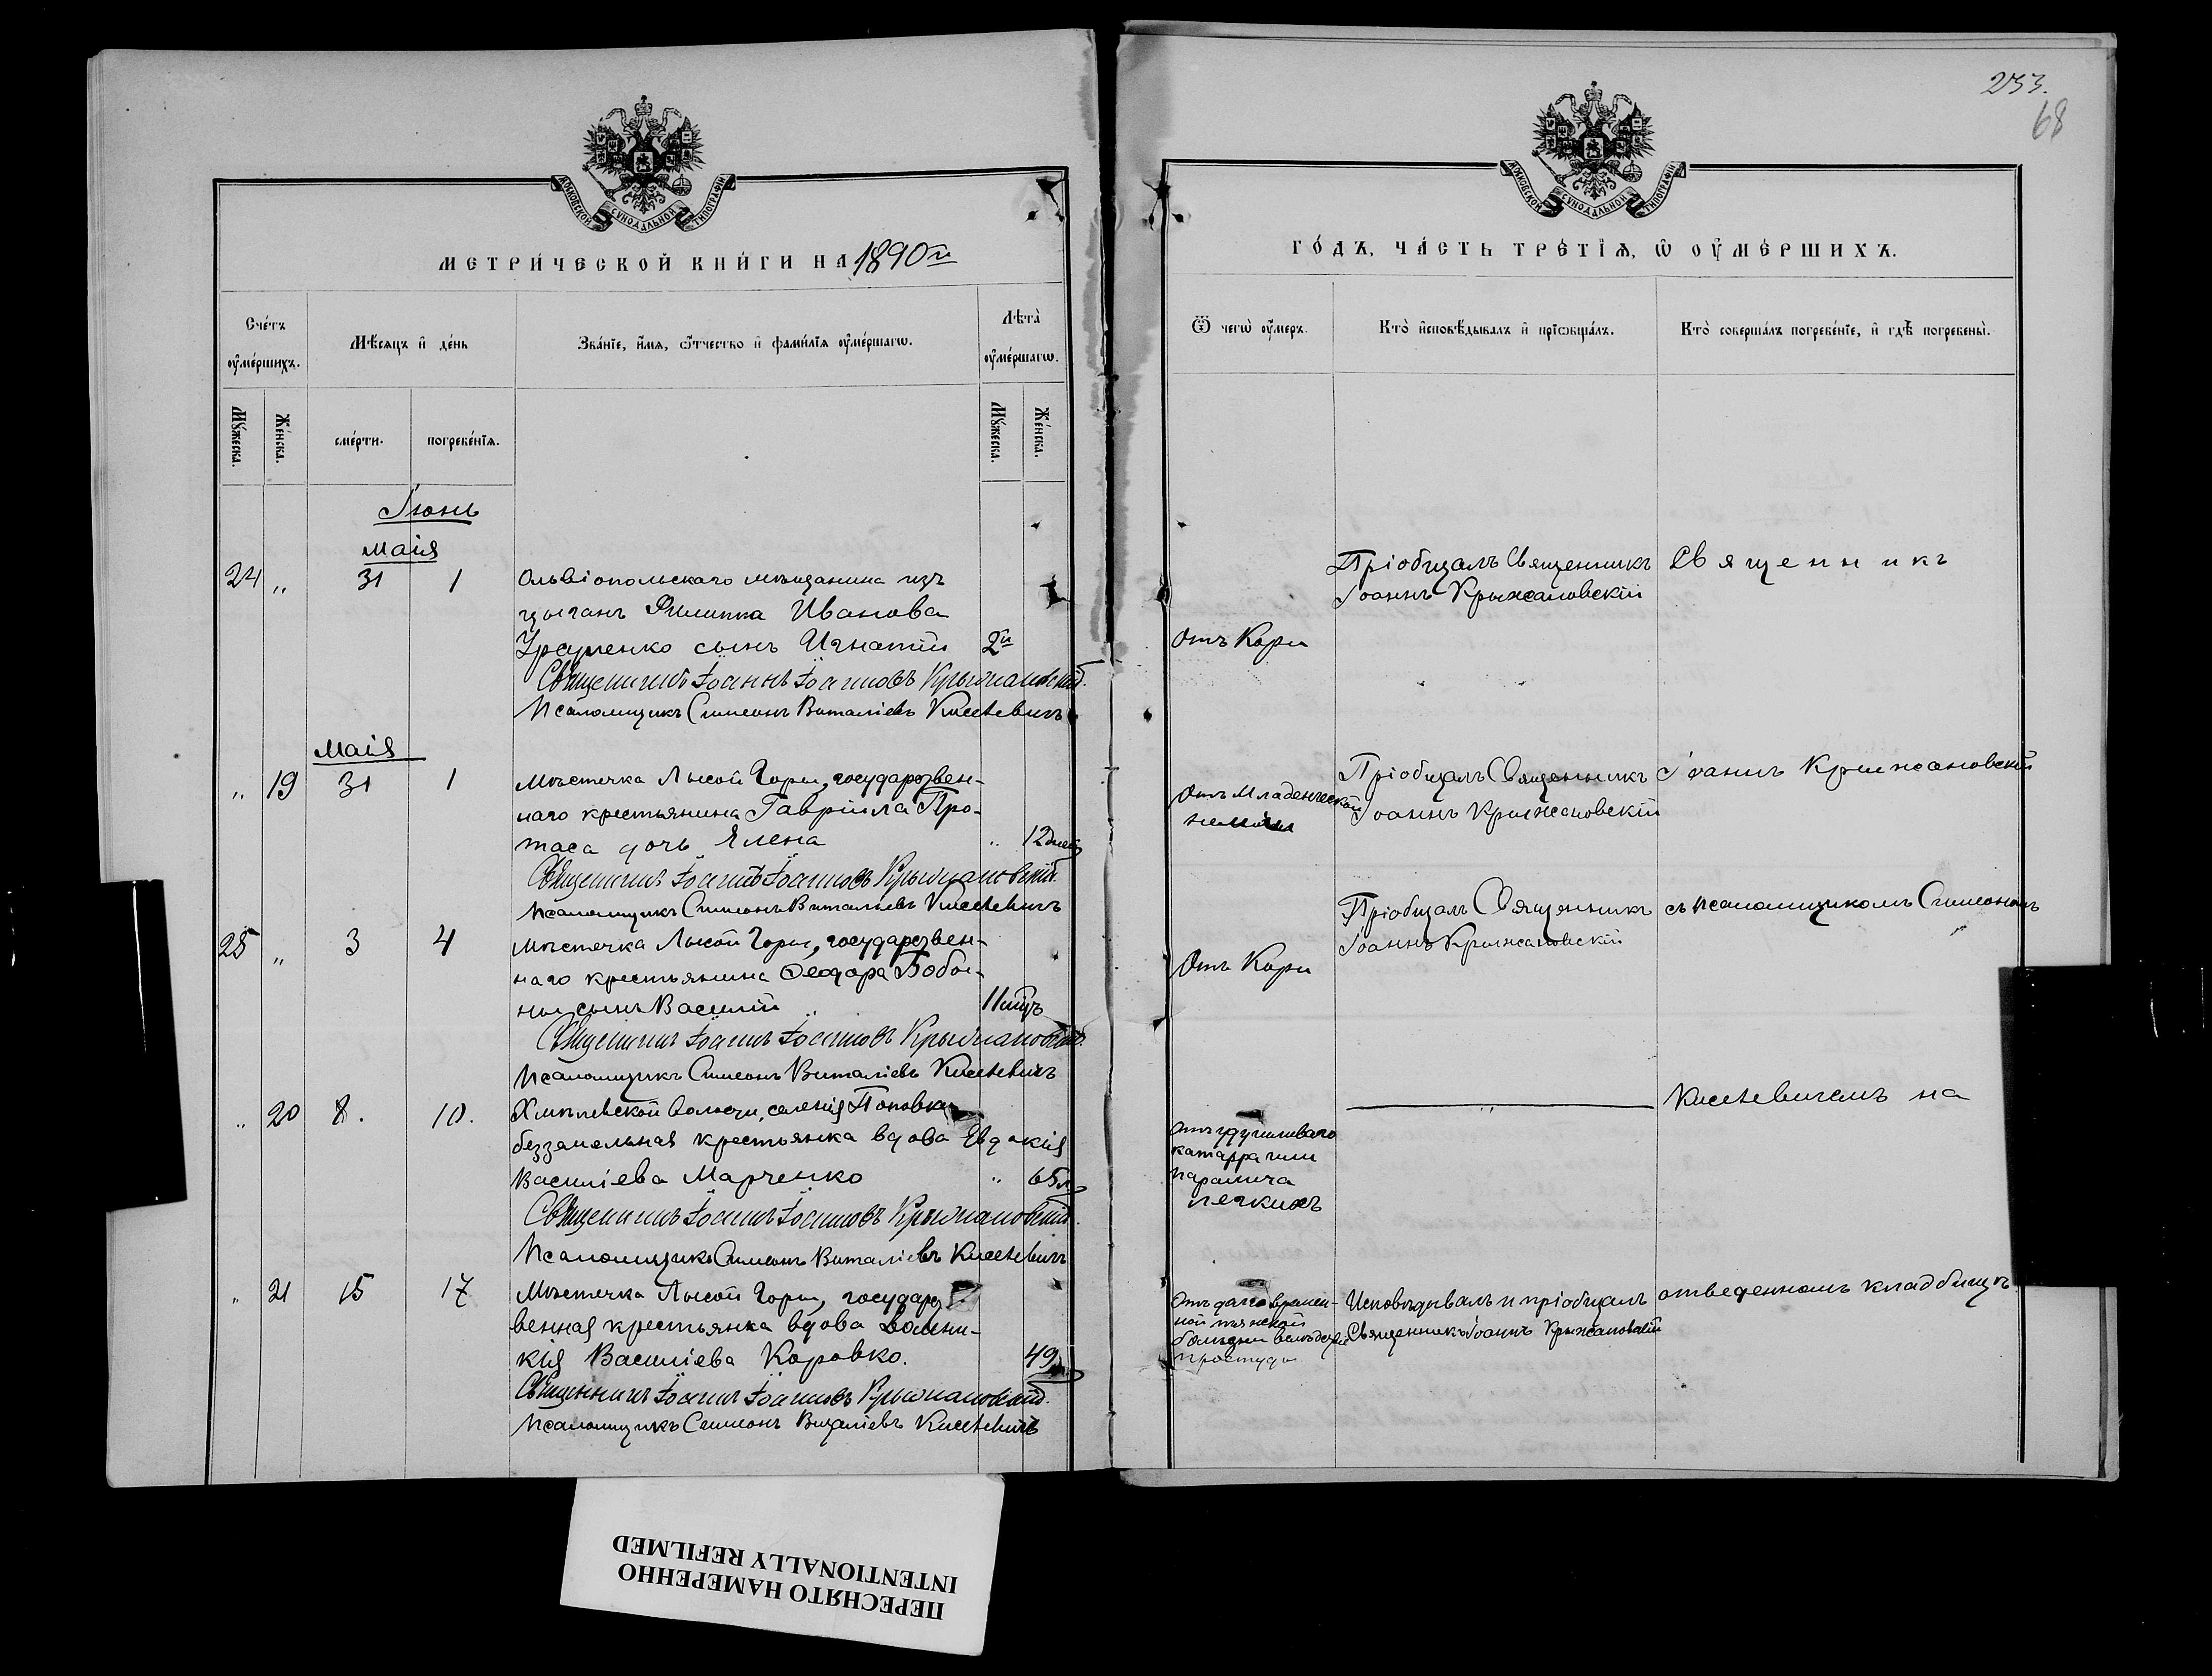 233.
68
МОСКОВСКОЙ СѴНОДАЛЬНОЙ ТИПОГРАФІИ
МЕТРИ́ЧЕСКОЙ КНИ́ГИ НА 1890й
Сче́тъ ᲂу҆ме́ршихъ.
Мѣ́сяцъ и҆ де́нь
Зва́нїе, и҆́мя, ѻ҆́тчество и҆ фами́лїя ᲂу҆ме́ршагѡ.
Лѣта̀ ᲂу҆ме́ршагѡ.
Мꙋ́жеска.
Же́нска.
сме́рти.
погребе́нїя.
Мꙋ́жеска.
Же́нска.
Іюнь
Маія
24 „ 31 1 Ольвіопольскаго мѣщанина изъ
цыганъ Филиппа Иванова
сынъ Игнатій 2й
Священникъ Іоаннъ Іоанновъ Крыжановскій.
Псаломщикъ Симеонъ Виталіевъ Киселевичъ
Маія
„ 19 31 1 Мѣстечка Лысой Горы, государствен-
наго крестьянина Гавріила Про-
таса дочь Елена „ 12 дней
Священникъ Іоаннъ Іоанновъ Крыжановскій.
Псаломщикъ Симеонъ Виталіевъ Киселевичъ
25 „ 3 4 Мѣстечка Лысой Горы, государствен-
наго крестьянина Ѳеодора Бобы-
ны сынъ Василій 11 мцъ „
Священникъ Іоаннъ Іоанновъ Крыжановскій.
Псаломщикъ Симеонъ Виталіевъ Киселевичъ
„ 20 8. 10. волости, селенія Поповки
безземельная крестьянка вдова Евдокія
Василіева Марченко „ 65 л.
Священникъ Іоаннъ Іоанновъ Крыжановскій.
Псаломщикъ Симеонъ Виталіевъ Киселевичъ
„ 21 15 17 Мѣстечка Лысой Горы, государст
венная крестьянка вдова Домни-
кія Василіева Коровко. 49
Священникъ Іоаннъ Іоанновъ Крыжановскій.
Псаломщикъ Симеонъ Виталіевъ Киселевичъ
МОСКОВСКОЙ СѴНОДАЛЬНОЙ ТИПОГРАФІИ
ГО́ДЪ, ЧА́СТЬ ТРЕ́ТЇЯ, Ѡ҆ ОУ҆МЕ́РШИХЪ.
Ѿ чегѡ̀ ᲂу҆́меръ.
Кто̀ и҆сповѣ́дывалъ и҆ прїѡбща́лъ.
Кто̀ соверша́лъ погребе́нїе, и҆ гдѣ̀ погребены̀.
Отъ Кори
Пріобщалъ Священникъ
Іоаннъ Крыжановскій
Священникъ
Отъ Младенческой
Пріобщалъ Священникъ
Іоаннъ Крыжановскій
Іоаннъ Крыжановскій
Отъ Кори
Пріобщалъ Священникъ
Іоаннъ Крыжановскій
съ псаломщикомъ Симеономъ
Отъ удушливаго
катарра или
паралича
легкихъ
„
Киселевичемъ на
Отъ долговремен-
ной женской
болѣзни вслѣдствіе
простуды
Исповѣдывалъ и пріобщалъ
Священникъ Іоаннъ Крыжановскій
отведенномъ кладбищѣ.
ПЕРЕСНЯТО НАМЕРЕННО
INTENTIONALLY REFILMED